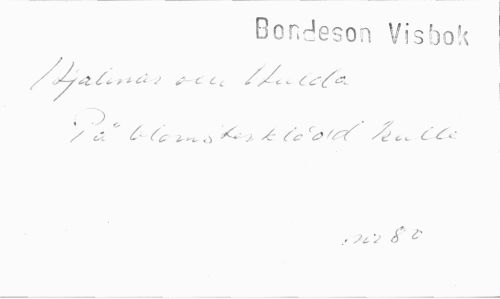 Bondeson Visbok
Hjalmar och Hulda
"På blomsterklädd kulle
nr 80